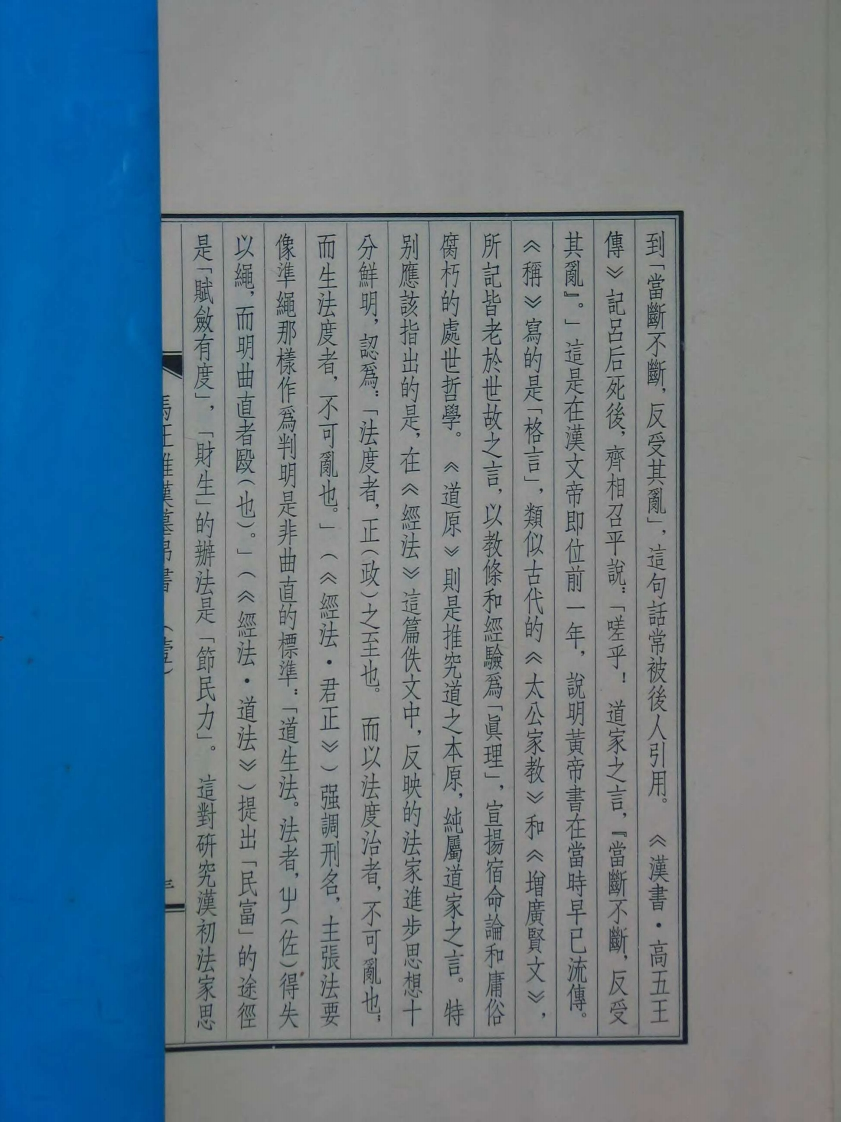 到「當斷不斷，反受其亂」，這句話常被後人引用。《漢書·高五王
傳》記呂后死後，齊相召平說：「嗟乎！道家之言，『當斷不斷，反受
其亂』。」這是在漢文帝即位前一年，說明黃帝書在當時早已流傳。
《稱》寫的是「格言」，類似古代的《太公家教》和《增廣賢文》，
所記皆老於世故之言，以教條和經驗爲「眞理」，宣揚宿命論和庸俗
腐朽的處世哲學。《道原》則是推究道之本原，純屬道家之言。特
别應該指出的是，在《經法》這篇佚文中，反映的法家進步思想十
分鮮明，認爲：「法度者，正（政）之至也。而以法度治者，不可亂也；
而生法度者，不可亂也。」（《經法·君正》）强調刑名，主張法要
像準繩那樣作爲判明是非曲直的標準：「道生法。法者，屮（佐）得失
以繩，而明曲直者殹（也）。」（《經法·道法》）提出「民富」的途徑
是「賦斂有度」，「財生」的辦法是「節民力」。這對研究漢初法家思
馬王堆漢墓帛書（壹）